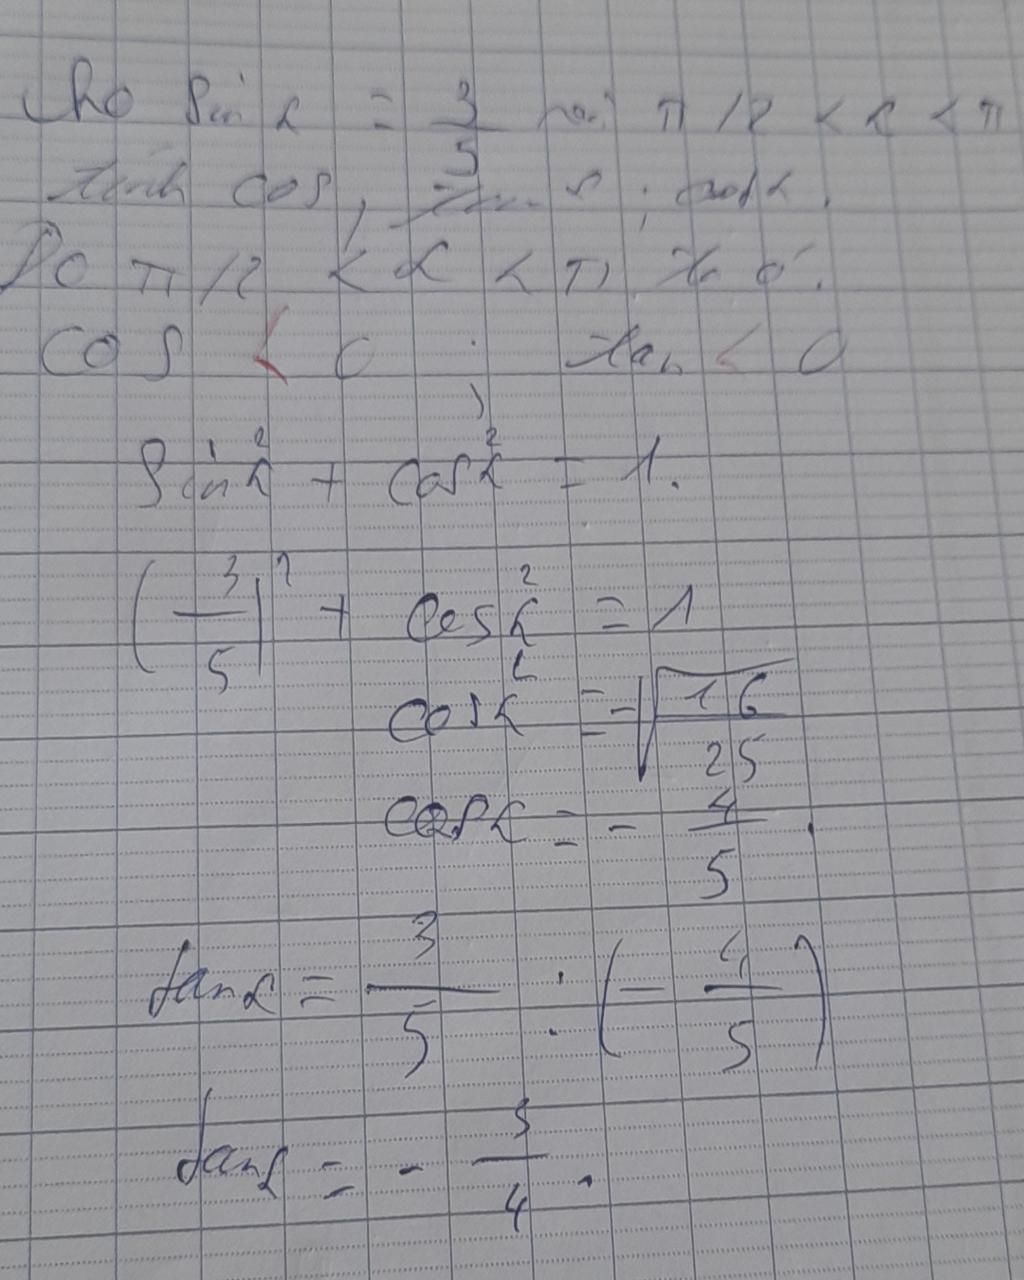 Cho sin α = 3/5 với π/2 < α < π
tính cos, tan α; cot α.
Do π/2 < α < π ta có.
cos < 0; tan < 0
sin²α + cos²α = 1.
(3/5)² + cos²α = 1
cos²α = -√16/25
cosα = - 4/5.
tanα = 3/5 : (- 4/5)
tanα = - 3/4.